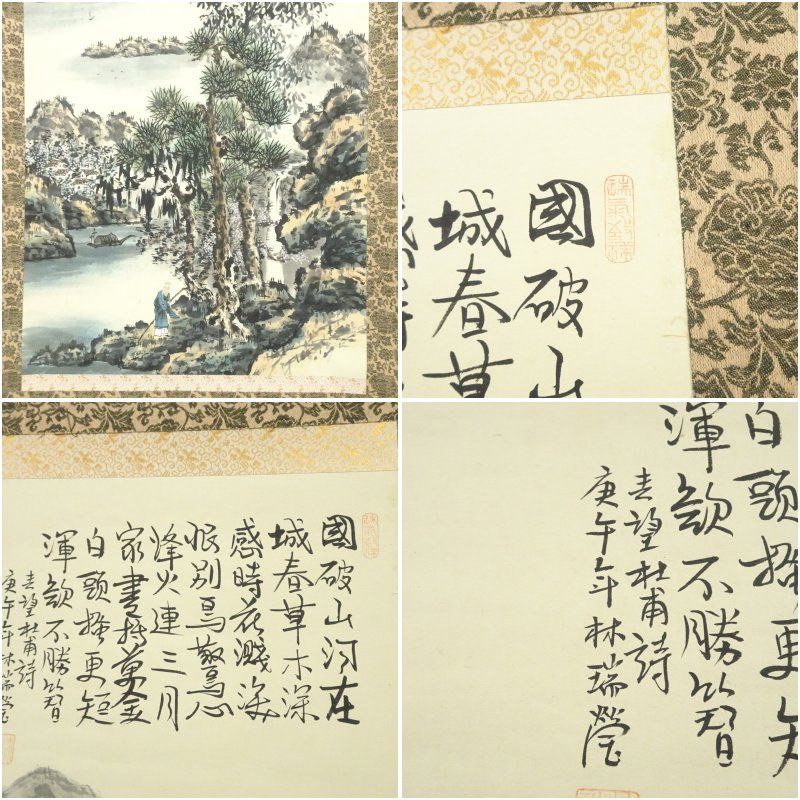 國破山
城春草
國破山河在
城春草木深
感時花濺淚
恨別鳥驚心
烽火連三月
家書抵萬金
白頭搔更短
渾欲不勝簪
春望杜甫詩
庚午年林瑞瑩
白頭搔更短
渾欲不勝簪
春望杜甫詩
庚午年林瑞瑩